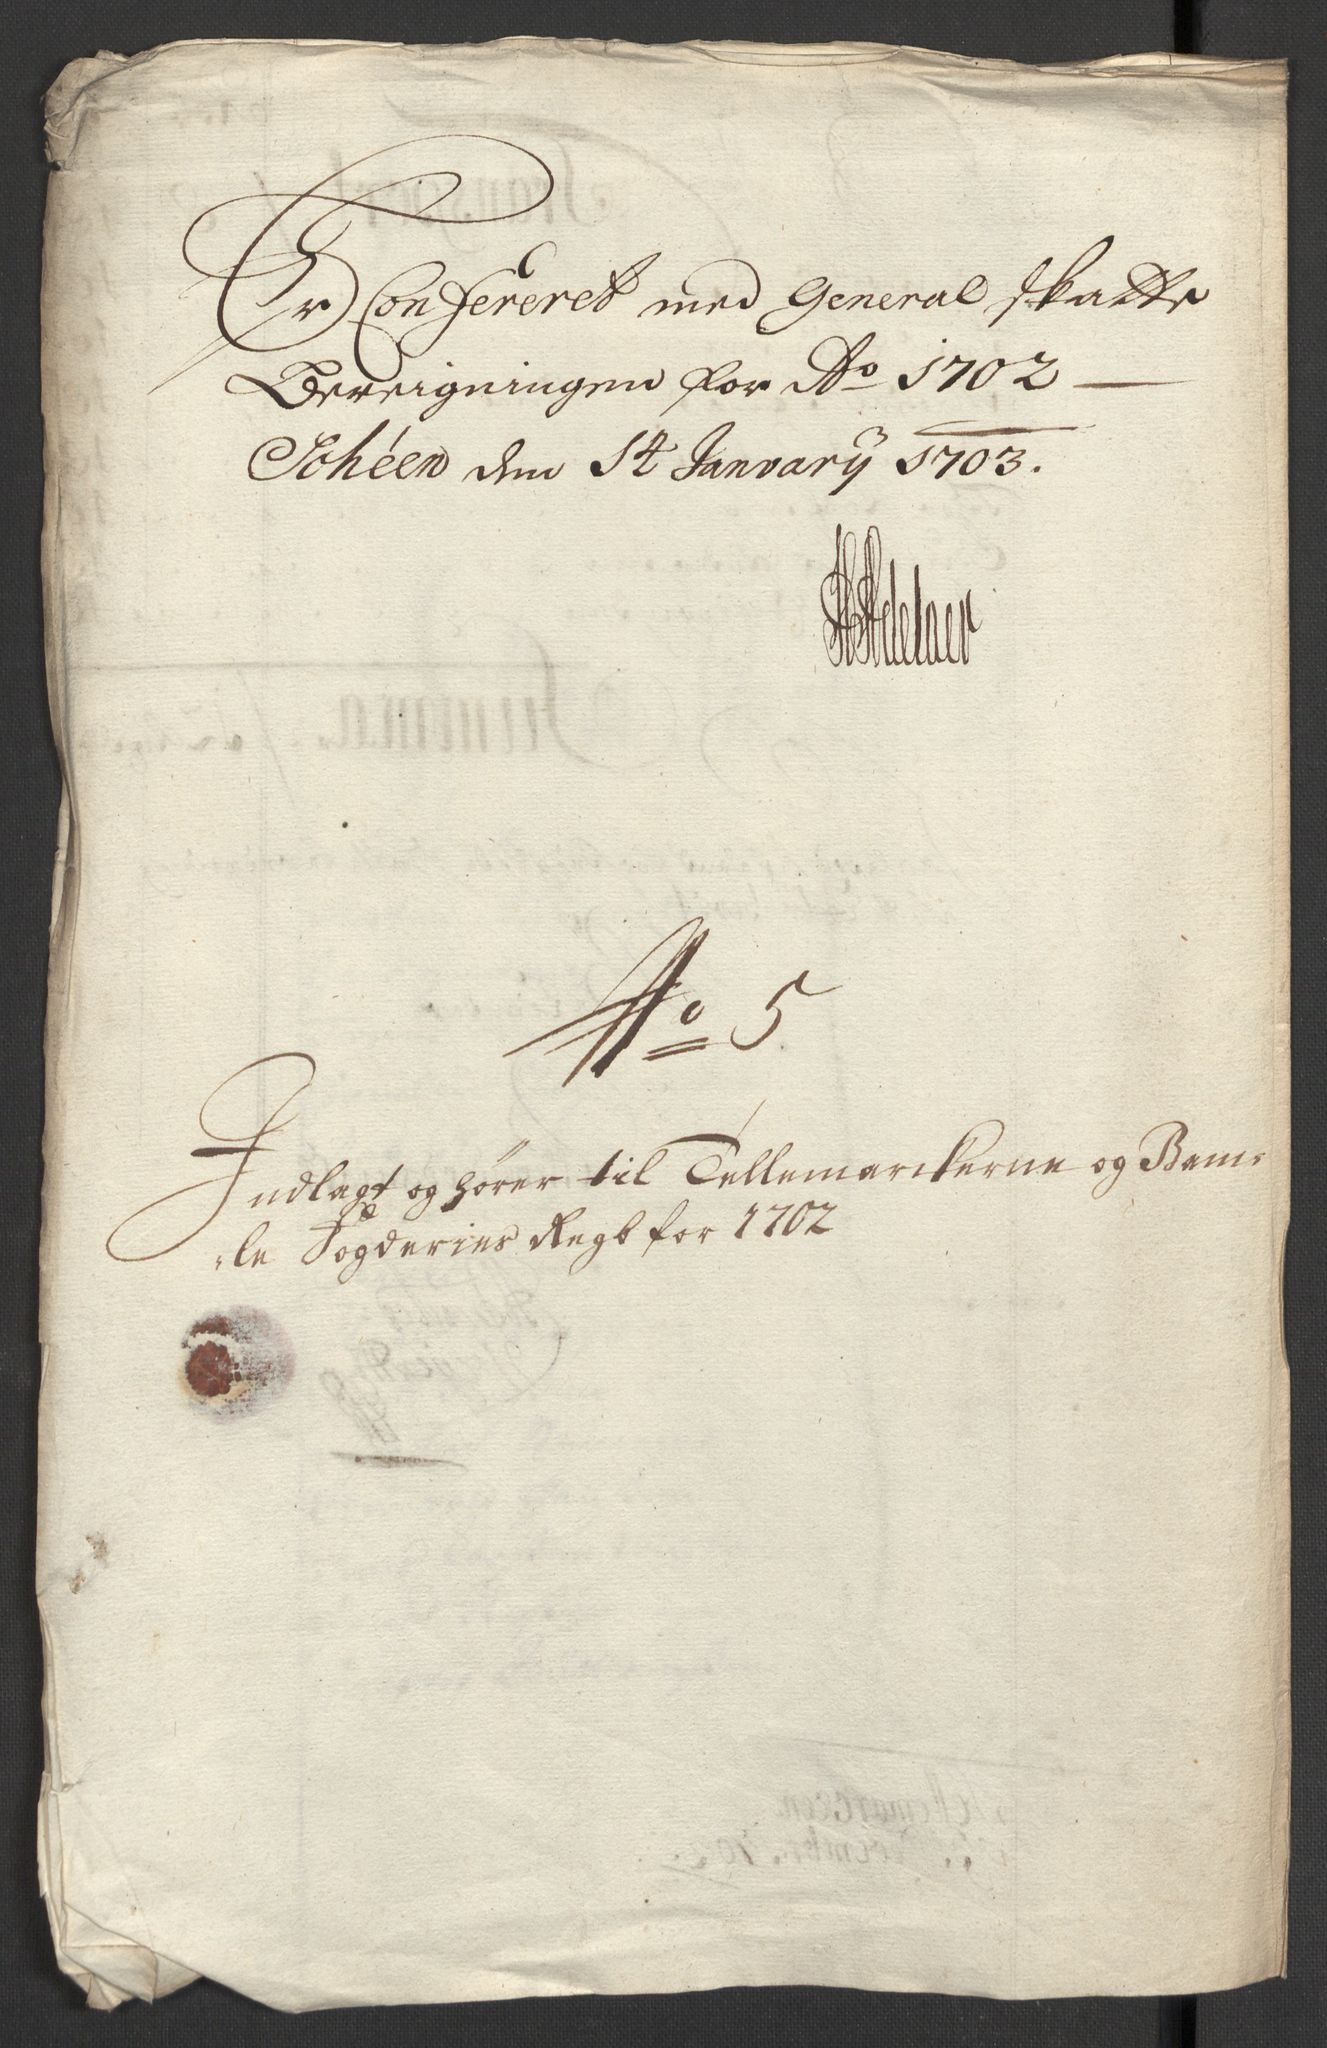 Er Confereret med General skatte
Bereigningen for Ao 1702
Schéen den 14 Januarÿ 1703.
HAdelaer
No 5
Indlagt og hører til Tellemarckerne og Bam-
le Fogderies Regb for 1702